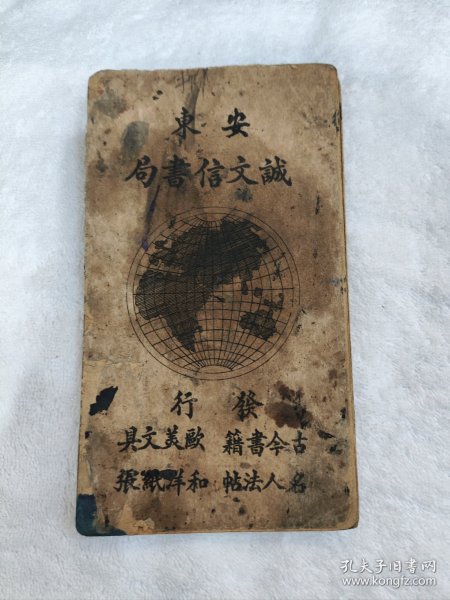 安東
誠文信書局
發行
古今書籍 歐美文具
名人法帖 和洋紙張
孔夫子旧书网
www.kongfz.com